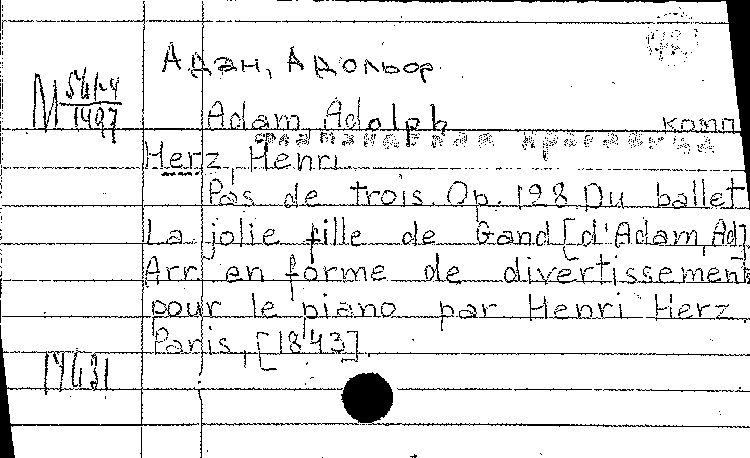 Адан, Адольф
Adam, Adolph комп
Herz, Henri
Pas de trois. Op. 128. Du ballet
La jolie fille de Gand [d'Adam, Ad]
Arr. en forme de divertissement
pour le piano par Henri Herz
Paris, [1843].